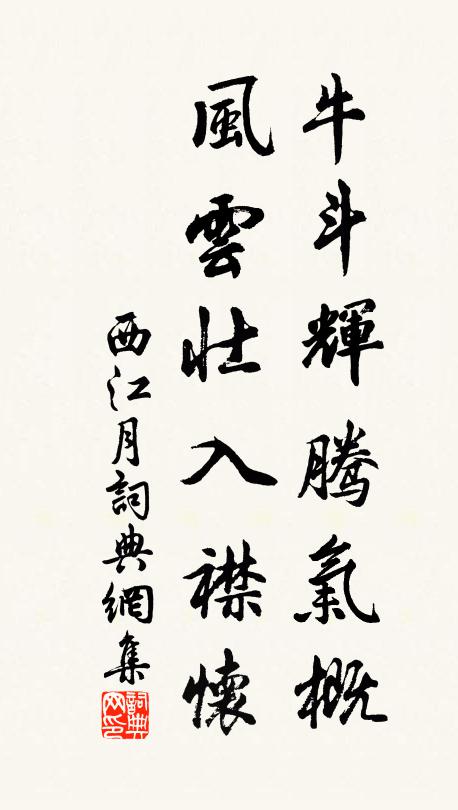 牛斗輝騰氣概
風雲壯入襟懷
西江月詞典網集
詞典網印